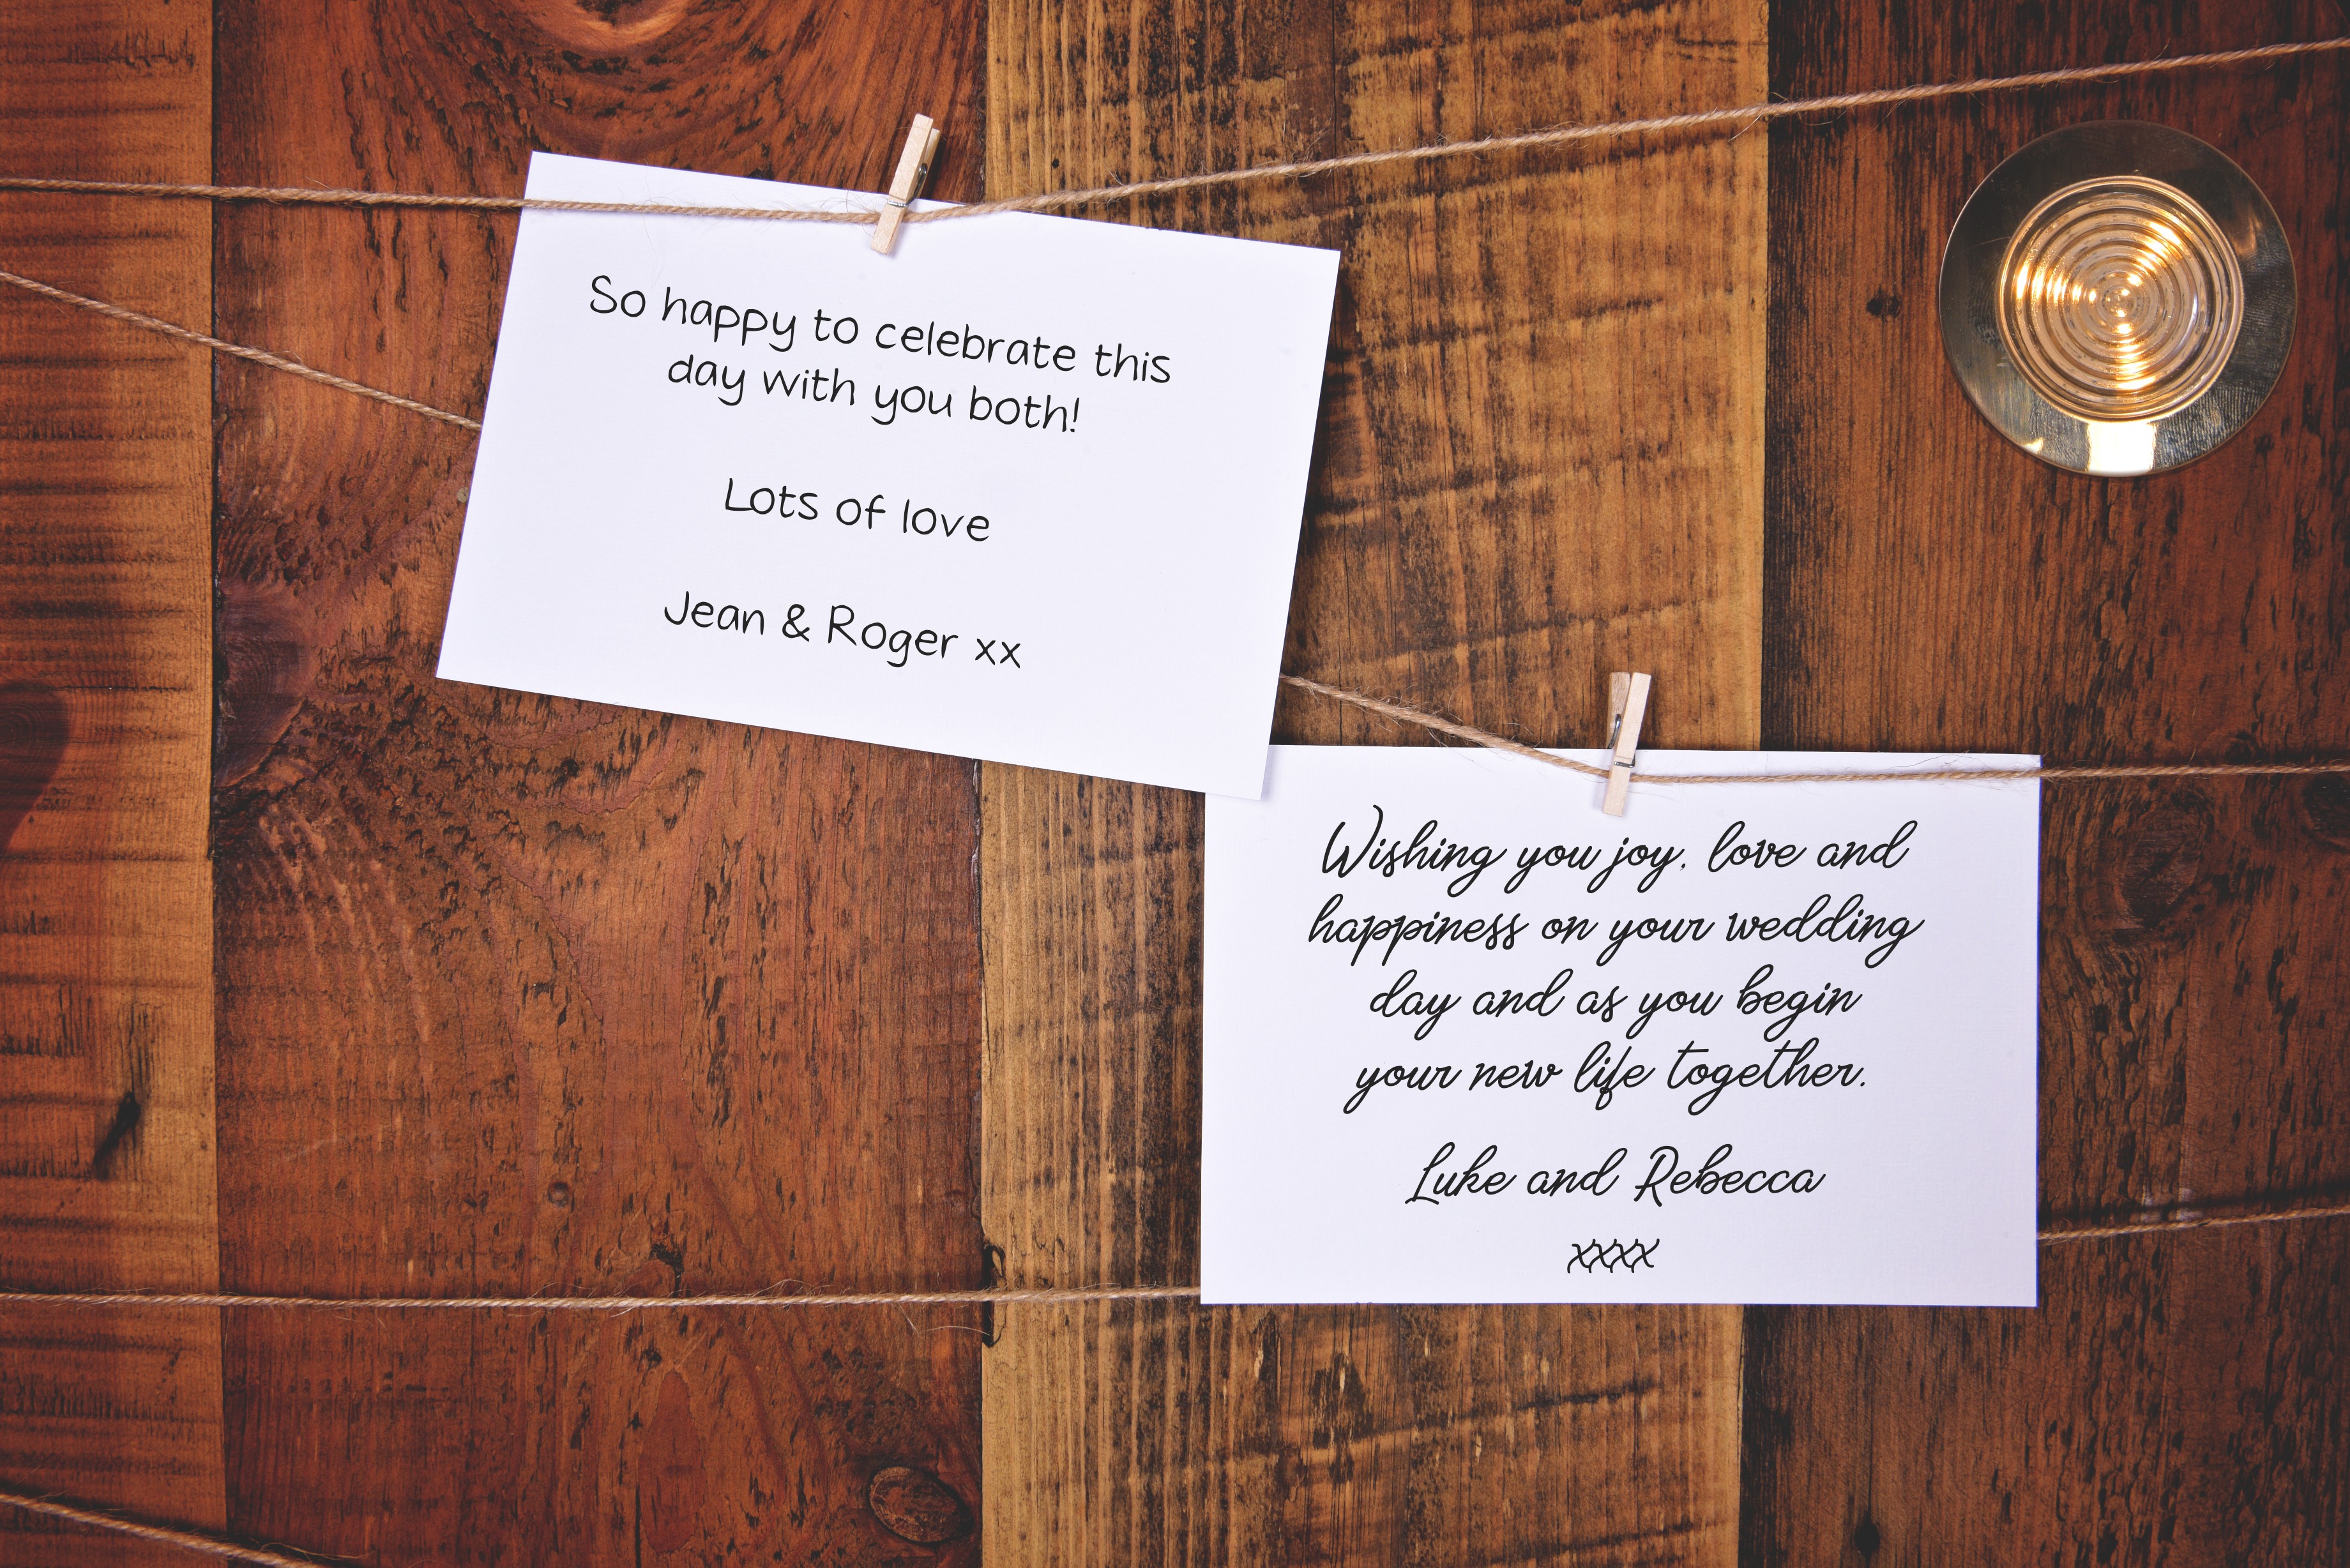 So happy to celebrate this
day with you both!
Lots of love
Jean & Roger xx
Wishing you joy, love and
happiness on your wedding
day and as you begin
your new life together.
Luke and Rebecca
xxxx